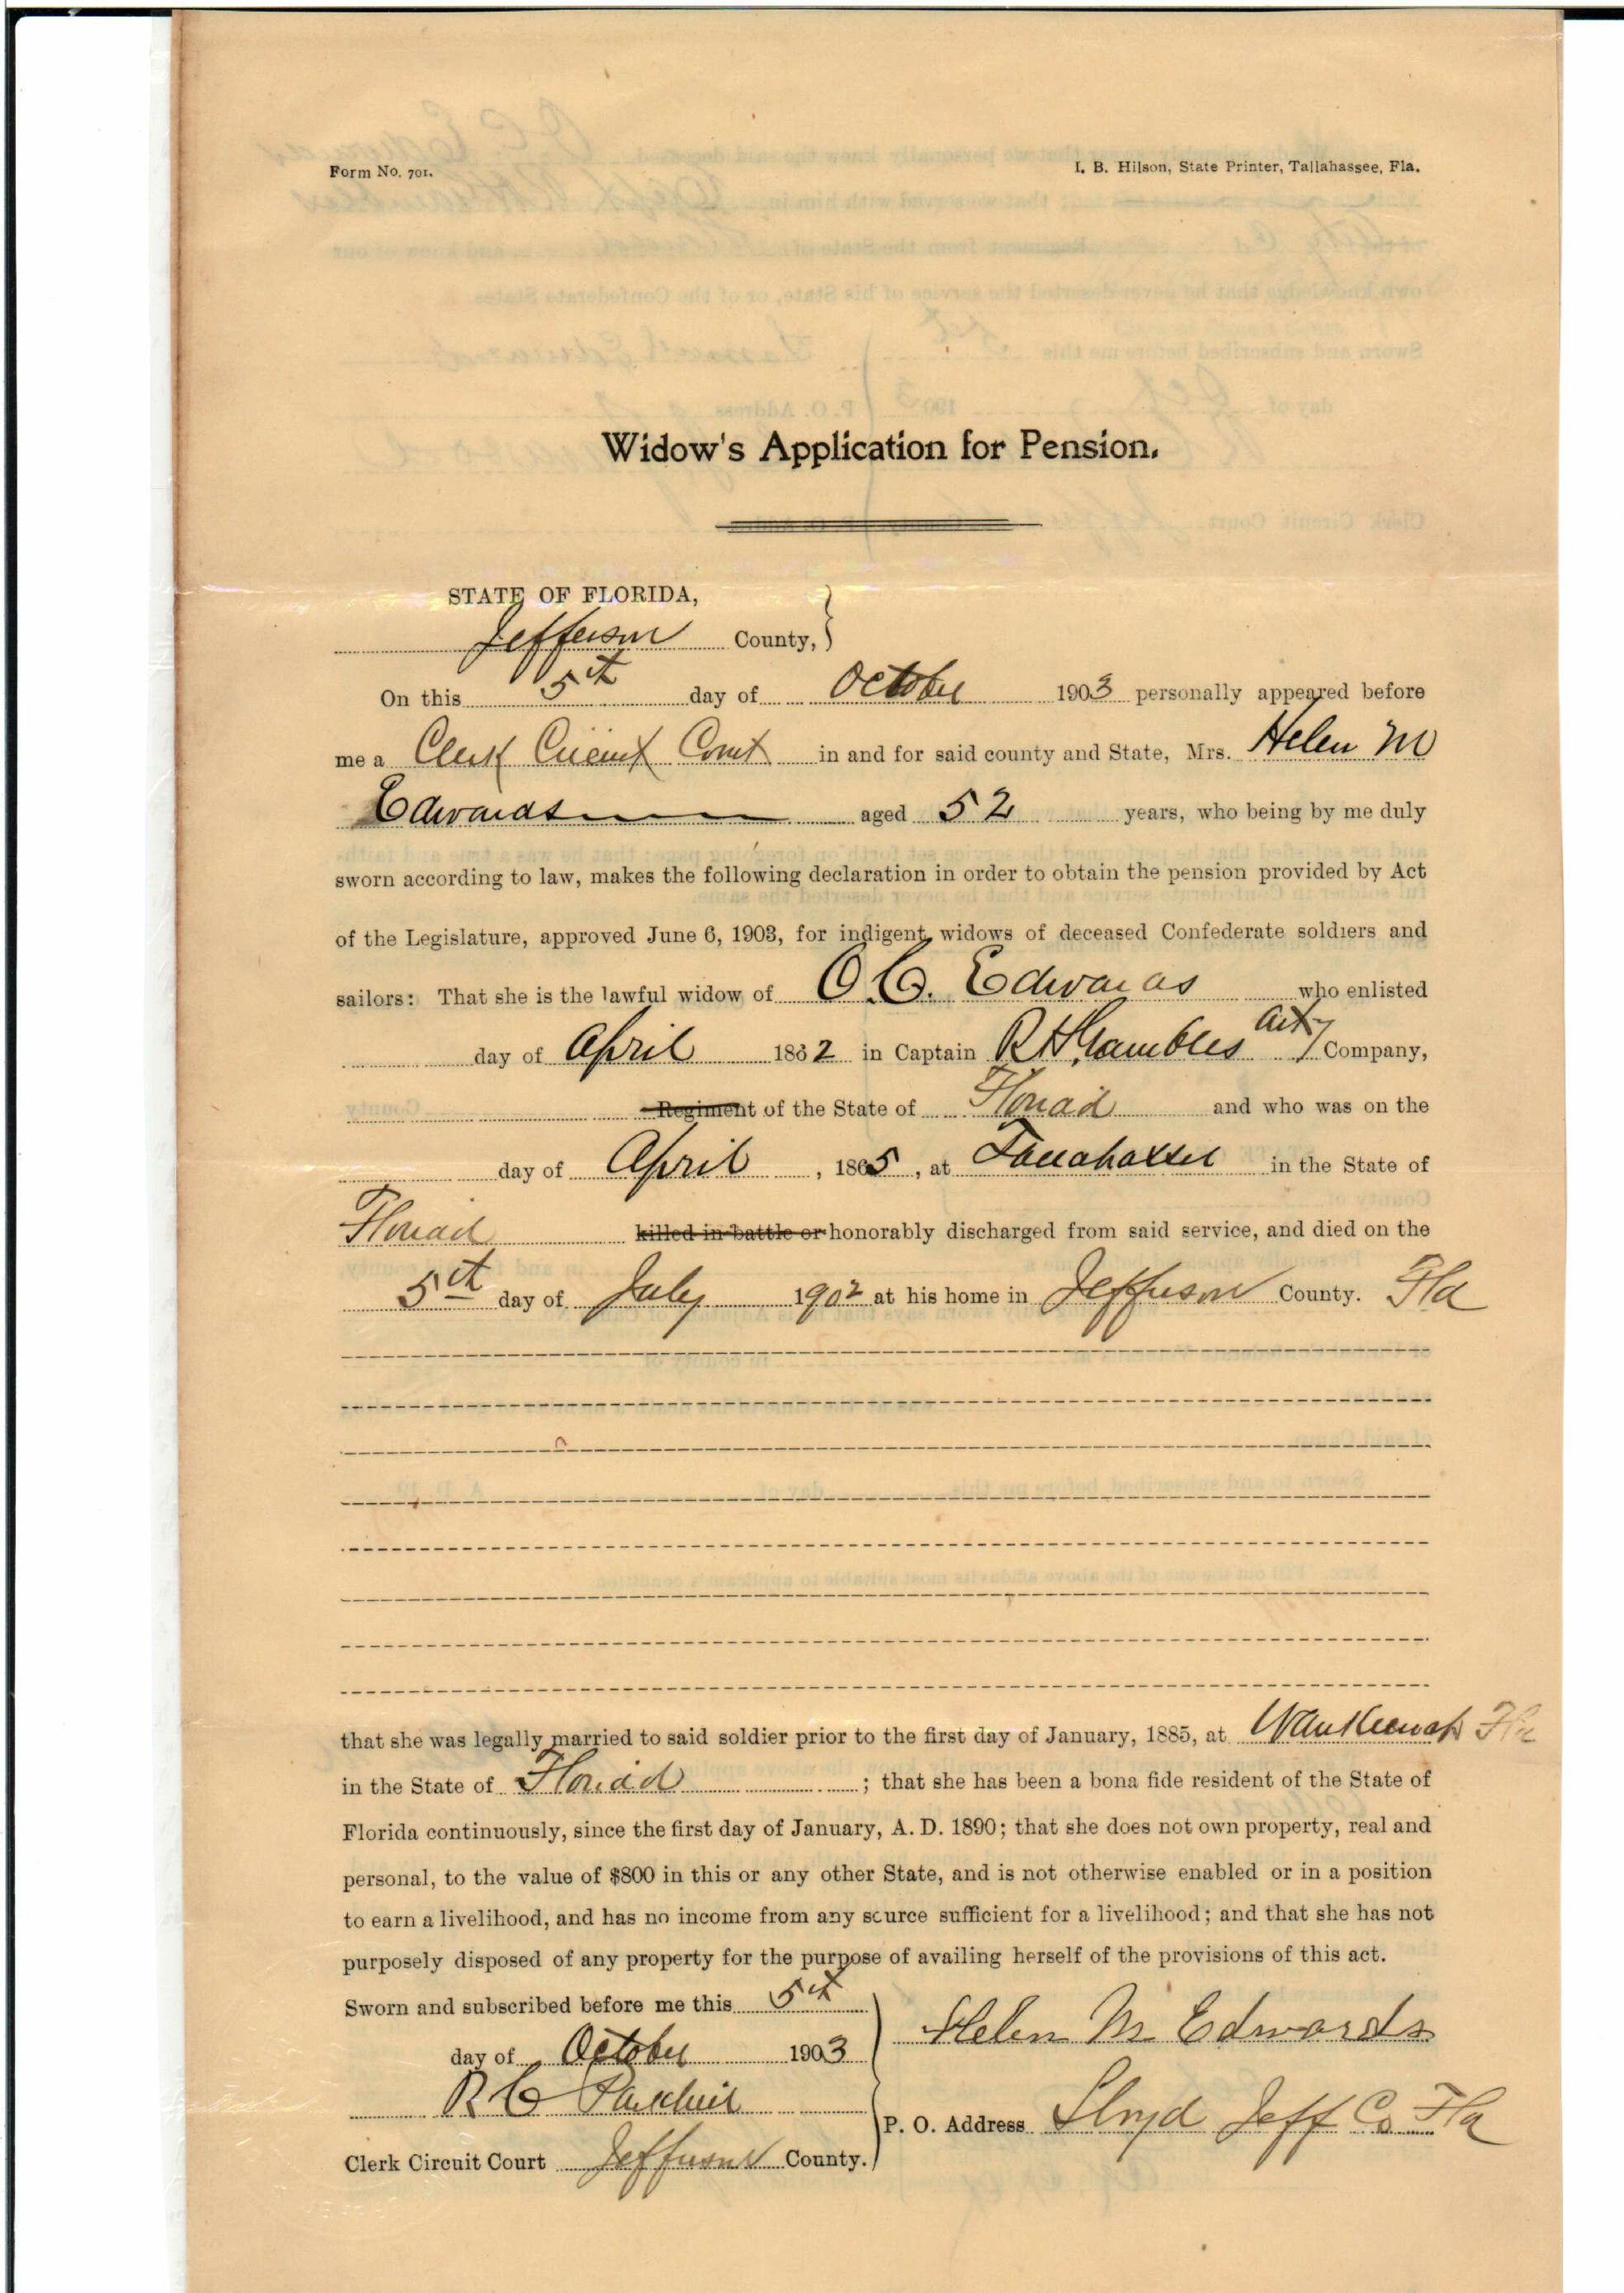 Form No. 701.
I. B. Hilson, State Printer, Tallahassee, Fla.
Widow's Application for Pension.
STATE OF FLORIDA,
Jefferson County,
On this 5th day of October 1903 personally appeared before
me a Clerk Circuit Court in and for said county and State, Mrs. Helen M
Edwards aged 52 years, who being by me duly
sworn according to law, makes the following declaration in order to obtain the pension provided by Act
of the Legislature, approved June 6, 1903, for indigent widows of deceased Confederate soldiers and
sailors: That she is the lawful widow of O.C. Edwards who enlisted
day of April 1862 in Captain R H Gambles Arty Company,
Regiment of the State of Florida and who was on the
day of April, 1865, at Tallahassee in the State of
Florida killed in battle or honorably discharged from said service, and died on the
5th day of July 1902 at his home in Jefferson County. Fla
that she was legally married to said soldier prior to the first day of January, 1885, at Waukeenah Fla
in the State of Florida; that she has been a bona fide resident of the State of
Florida continuously, since the first day of January, A. D. 1890; that she does not own property, real and
personal, to the value of $800 in this or any other State, and is not otherwise enabled or in a position
to earn a livelihood, and has no income from any source sufficient for a livelihood; and that she has not
purposely disposed of any property for the purpose of availing herself of the provisions of this act.
Sworn and subscribed before me this 5th
day of October 1903
Helen M Edwards
R C
P. O. Address Lloyd Jeff Co Fla
Clerk Circuit Court Jefferson County.